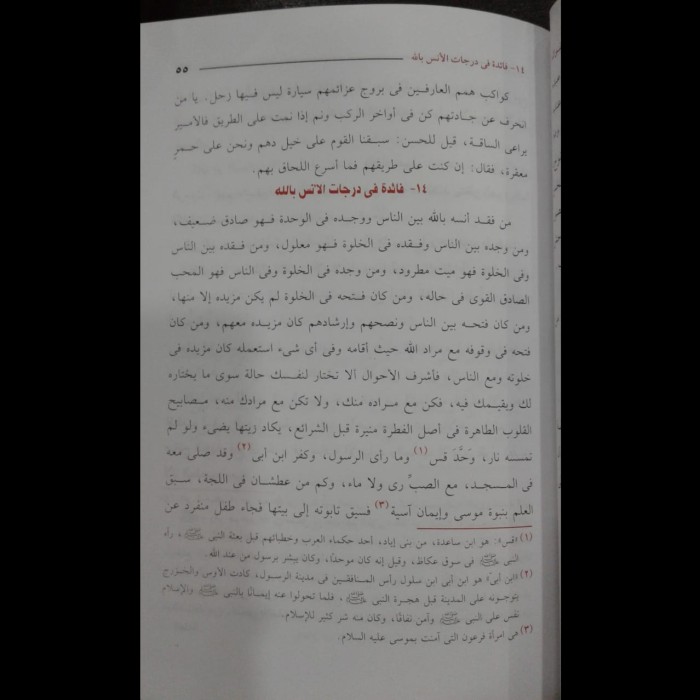 ١٤- فائدة فى درجات الأنس بالله
٥٥
كواكب همم العارفين فى بروج عزائمهم سيارة ليس فيها زحل. يا من
انحرف عن جادتهم كن فى أواخر الركب ونم إذا نمت على الطريق فالأمير
يراعى الساقة، قيل للحسن: سبقنا القوم على خيل دهم ونحن على حمر
معقرة، فقال: إن كنت على طريقهم فما أسرع اللحاق بهم.
١٤- فائدة فى درجات الأنس بالله
من فقد أنسه بالله بين الناس ووجده فى الوحدة فهو صادق ضعيف،
ومن وجده بين الناس وفقده فى الخلوة فهو معلول، ومن فقده بين الناس
وفى الخلوة فهو ميت مطرود، ومن وجده فى الخلوة وفى الناس فهو المحب
الصادق القوى فى حاله، ومن كان فتحه فى الخلوة لم يكن مزيده إلا منها،
ومن كان فتحه بين الناس ونصحهم وإرشادهم كان مزيده معهم، ومن كان
فتحه فى وقوفه مع مراد الله حيث أقامه وفى أى شىء استعمله كان مزيده فى
خلوته ومع الناس، فأشرف الأحوال ألا تختار لنفسك حالة سوى ما يختاره
لك ويقيمك فيه، فكن مع مراده منك، ولا تكن مع مرادك منه، مصابيح
القلوب الطاهرة فى أصل الفطرة منيرة قبل الشرائع، يكاد زيتها يضىء ولو لم
تمسسه نار، وَحَّدَ قس(١) وما رأى الرسول، وكفر ابن أبى(٢) وقد صلى معه
فى المسجد، مع الضبِّ رى ولا ماء، وكم من عطشان فى اللجة، سبق
العلم بنبوة موسى وإيمان آسية(٣) فسيق تابوته إلى بيتها فجاء طفل منفرد عن
(١) «قس»: هو ابن ساعدة، من بنى إياد، أحد حكماء العرب وخطبائهم قبل بعثة النبى ﷺ، رآه
النبى ﷺ فى سوق عكاظ، وقيل إنه كان موحدًا، وكان يبشر برسول من عند الله.
(٢) «ابن أبىّ» هو ابن أبى ابن سلول رأس المنافقين فى مدينة الرسول، كادت الأوس والخزرج
يتوجونه على المدينة قبل هجرة النبى ﷺ، فلما تحولوا عنه إيمانًا بالنبى ﷺ والإسلام
نفس على النبى ﷺ وأمن نفاقًا، وكان منه شر كثير للإسلام.
(٣) هى امرأة فرعون التى آمنت بموسى عليه السلام.